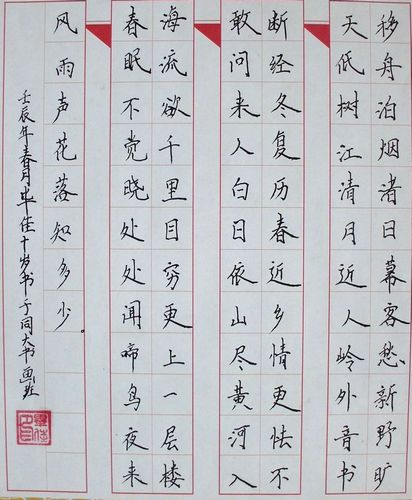 移舟泊烟渚日暮客愁新野旷
天低树江清月近人岭外音书
断经冬复历春近乡情更怯不
敢问来人白日依山尽黄河入
海流欲千里目穷更上一层楼
春眠不觉晓处处闻啼鸟夜来
风雨声花落知多少
壬辰年春月毕佳十岁书于同大书画班